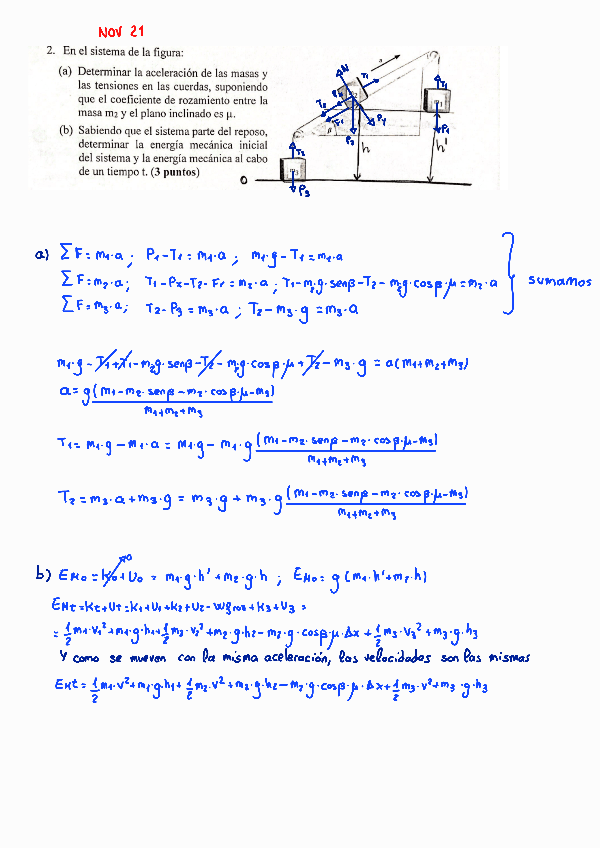 NOV 21
2. En el sistema de la figura:
(a) Determinar la aceleración de las masas y
las tensiones en las cuerdas, suponiendo
que el coeficiente de rozamiento entre la
masa m₂ y el plano inclinado es μ.
(b) Sabiendo que el sistema parte del reposo,
determinar la energía mecánica inicial
del sistema y la energía mecánica al cabo
de un tiempo t. (3 puntos)
N T1 a
T2 Fr Py β
T1 P1
h h'
T2 P3
0
a) ΣF=m₁·a ; P₁-T₁ = m₁·a ; m₁·g-T₁=m₁·a
ΣF=m₂·a ; T₁-Px-T₂-Fr=m₂·a ; T₁-m₂g·senβ-T₂-m₂g·cosβ·μ=m₂·a
sumamos
ΣF=m₃·a; T₂-P₃=m₃·a ; T₂-m₃·g=m₃·a
m₁·g-T₁+T₁-m₂g·senβ-T₂-m₂g·cosβ·μ+T₂-m₃·g = a(m₁+m₂+m₃)
a=g(m₁-m₂·senβ-m₂·cosβ·μ-m₃)
m₁+m₂+m₃
T₁=m₁·g-m₁·a = m₁·g-m₁·g(m₁-m₂·senβ-m₂·cosβ·μ-m₃)
m₁+m₂+m₃
T₂=m₃·a+m₃·g = m₃·g+m₃·g(m₁-m₂·senβ-m₂·cosβ·μ-m₃)
m₁+m₂+m₃
b) EM₀=K₀+U₀ = m₁·g·h'+m₂·g·h ; EM₀=g(m₁·h'+m₂·h)
EMt=Kt+Ut=K₁+U₁+K₂+U₂-WFroz+K₃+U₃=
=½m₁·V₁²+m₁·g·h₁+½m₂·V₂²+m₂·g·h₂-m₂·g·cosβ·μ·Δx+½m₃·V₃²+m₃·g·h₃
Y como se mueven con la misma aceleración, las velocidades son las mismas
EMt=½m₁·V²+m₁·g·h₁+½m₂·V²+m₂·g·h₂-m₂·g·cosβ·μ·Δx+½m₃·V²+m₃·g·h₃